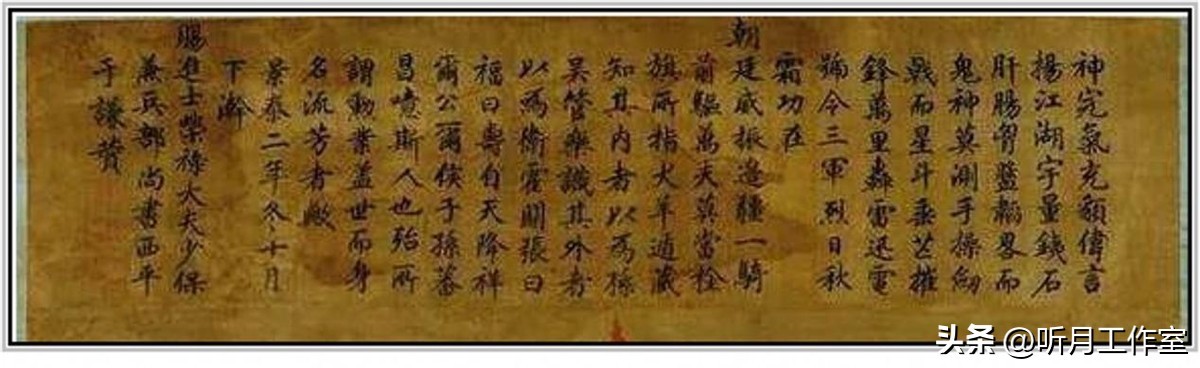 神完氣充貌偉言
揚江湖宇量鐵石
肝腸胷盤韜畧而
鬼神莫測手操劒
戟而星斗垂芒摧
鋒萬里轟雷迅電
號令三軍烈日秋
霜功在
朝廷威振邊疆一騎
前驅萬夫莫當
旗所指犬羊遁藏
知其內者以為孫
吳管樂識其外者
以為衛霍關張曰
福曰壽自天降祥
爾公爾侯子孫蕃
昌噫斯人也殆所
謂勳業蓋世而身
名流芳者歟
景泰二年冬十月
下澣
賜進士榮祿大夫少保
兼兵部尚書西平
于謙贊
头条 @听月工作室